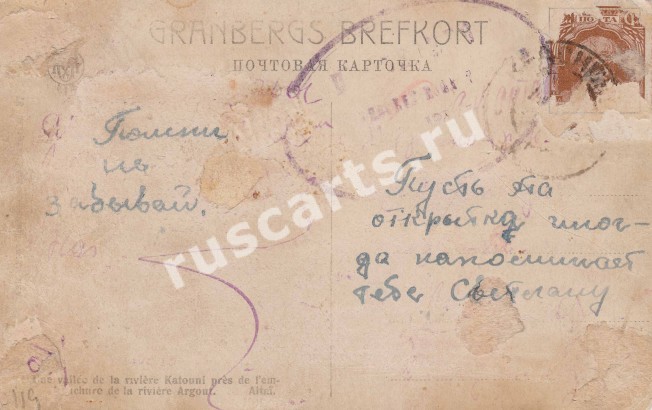 GRANBERGS BREFKORT
ПОЧТОВАЯ КАРТОЧКА
ПОЧТА
Помни
не
забывай.
Пусть та
открытка иног-
да напоминает
тебе Светлану
ruscarts.ru
Une vallée de la rivière Katouni près de l'em-
bouchure de la rivière Argout. Altaï.
119